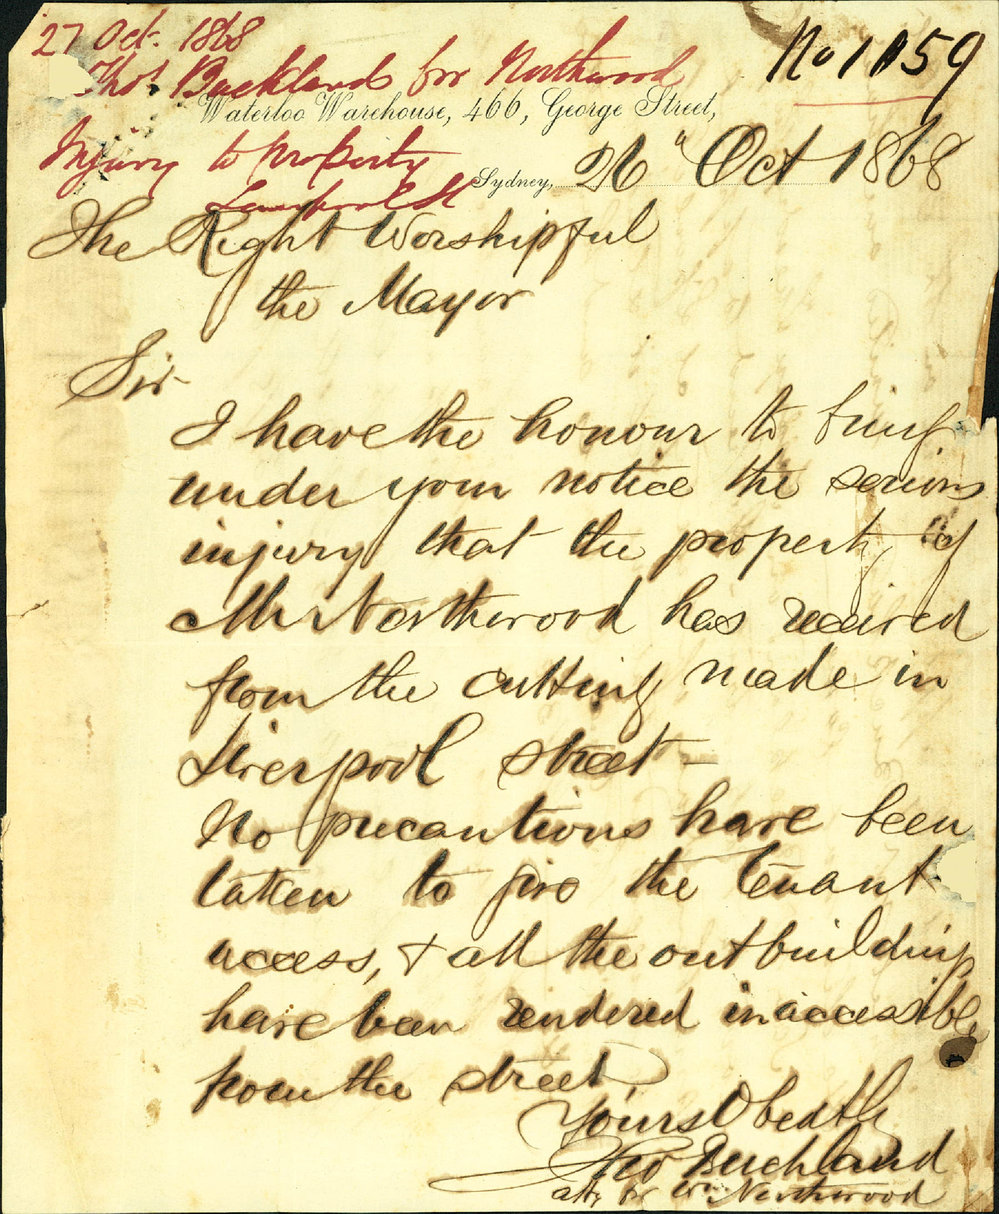 27 Oct. 1868
No 1159
Thos. Bucklands for Northwood
Waterloo Warehouse, 466, George Street,
Injury to property
Liverpool St
Sydney, 26" Oct 1868
The Right Worshipful
the Mayor
Sir
I have the honour to bring
under your notice the serious
injury that the property of
Mr Northwood has received
from the cutting made in
Liverpool street -
No precautions have been
taken to give the tenant
access, & all the outbuildings
have been rendered inaccessible
from the street.
Yours Obedtly
Thos Buckland
atty for Wm Northwood